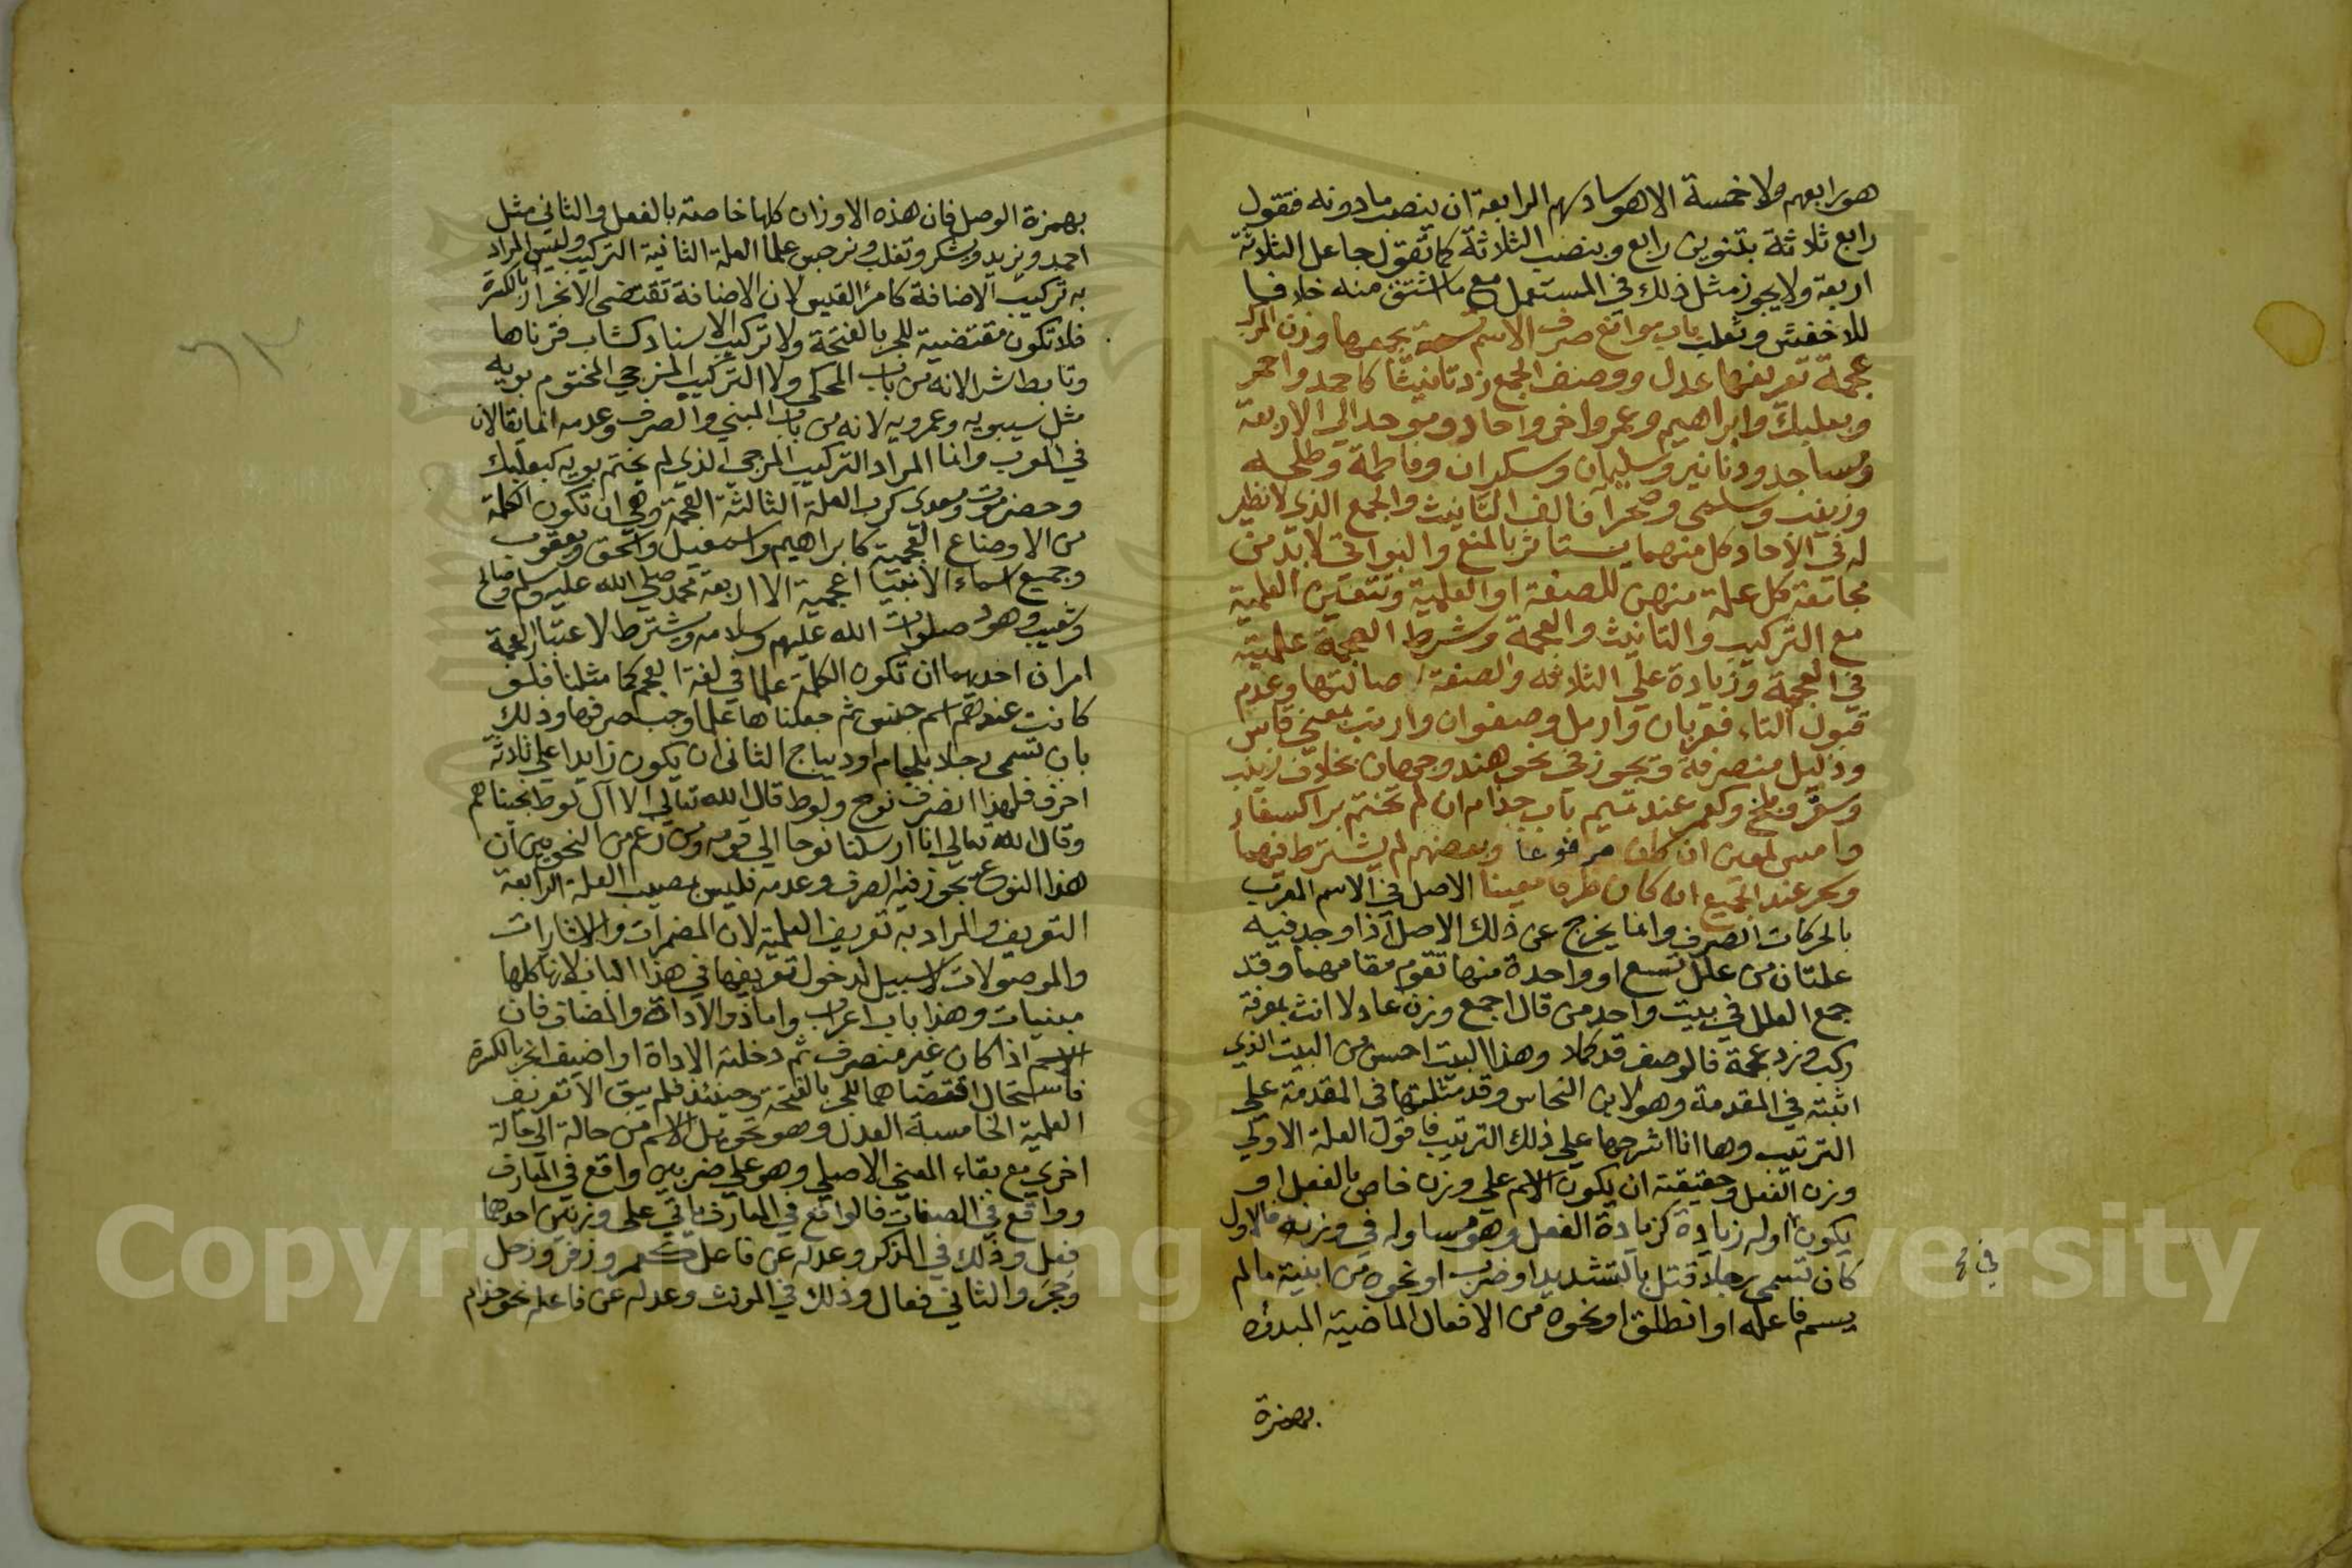 هو رابعهم ولا خمسة الا هو سادسهم الرابعة ان ينصب ما دونه فتقول
رابع ثلاثة بتنوين رابع وبنصب الثلاثة كما تقول جاعل الثلاثة
اربعة ولا يجوز مثل ذلك في المستعمل مع ما اشتق منه خلافا
للاخفش وثعلب باب موانع صرف الاسم تسعة يجمعها وزن المركب
عجمة تعريفها عدل ووصف الجمع زد تانيثا كاحمد واحمر
وبعلبك وابراهيم وعمر واخر واحاد وموحد الي الاربعة
ومساجد ودنانير وسليمان وسكران وفاطمة وطلحه
وزينب وسلمى وصحرآ فالف التانيث والجمع الذي لا نظير
له في الاحاد كل منهما يستاثر بالمنع والبواقي لا بد من
مجامعة كل علة منهن للصفة او العلمية وتتعين العلمية
مع التركيب والتانيث والعجمة وشرط العجمة علمية
في العجمية وزيادة علي الثلاثه والصفة اصالتها وعدم
قبول التاء فعريان وارمل وصفوان وارنب بمعني قاس
وذليل منصرفة ويجوز في نحو هند وجهان بخلاف زينب
وسقر وبلخ وكعمر عند تميم باب حذام ان لم تختم برا كسفار
وامس لمعين ان كان مرفوعا وبعضهم لم يشترط فيهما
وسحر عند الجميع ان كان ظرفا معينا الاصل في الاسم المعرب
بالحركات الصرف وانما يخرج عن ذلك الاصل اذا وجد فيه
علتان من علل تسع او واحدة منها تقوم مقامهما وقد
جمع العلل في بيت واحد من قال اجمع وزن عادلا انث بمعرفة
ركب وزد عجمة فالوصف قد كملا وهذا البيت احسن من البيت الذي
اثبته في المقدمة وهو لابن النحاس وقد مثلتها في المقدمة علي
الترتيب وها انا اشرحها علي ذلك الترتيب فاقول العلة الاولي
وزن الفعل وحقيقته ان يكون الاسم علي وزن خاص بالفعل او
يكون اوله زيادة كزيادة الفعل وهو مساو له في وزنه فالاول
كان تسمي رجلا قتل بالتشديد او ضرب او نحوه من ابنية ما لم
يسم فاعله او انطلق او نحوه من الافعال الماضية المبدؤه
بهمزة
في
بهمزة الوصل فان هذه الاوزان كلها خاصة بالفعل والثاني مثل
احمد ويزيد ويشكر وتغلب ونرجس علما العلة الثانية التركيب وليس المراد
به تركيب الاضافة كامرئ القيس لان الاضافة تقتضي الانجرار بالكسرة
فلا تكون مقتضية للجر بالفتحة ولا تركيب الاسناد كشاب قرناها
وتابط شرا لانه من باب المحكي ولا التركيب المزجي المختوم بويه
مثل سيبويه وعمرويه لانه من باب المبني والصرف وعدمه انما يقالان
في المعرب وانما المراد التركيب المزجي الذي لم يختم بويه كبعلبك
وحضرموت ومعدي كرب العلة الثالثة العجمة وهي ان تكون الكلمة
من الاوضاع العجمية كابراهيم واسمعيل واسحق ويعقوب
وجميع اسماء الانبيا اعجمية الا اربعة محمد صلي الله عليه وسلم وصالح
وشعيب وهود صلوات الله عليهم وسلامه ويشترط لاعتبار العجمة
امران احدهما ان تكون الكلمة علما في لغة العجم كما مثلنا فلو
كانت عندهم اسم جنس ثم جعلناها علما وجب صرفها وذلك
بان تسمي رجلا بلجام او ديباج الثاني ان يكون زايدا علي ثلاثة
احرف فلهذا انصرف نوح ولوط قال الله تعالي الا آل لوط نجيناهم
وقال الله تعالي انا ارسلنا نوحا الي قومه ومن زعم من النحويين ان
هذا النوع يجوز فيه الصرف وعدمه فليس بمصيب العلة الرابعة
التعريف والمراد به تعريف العلمية لان المضمرات والاشارات
والموصولات لا سبيل لدخول تعريفها في هذا الباب لانها كلها
مبنيات وهذا باب اعراب واما ذو الاداة والمضاف فان
الاسم اذا كان غير منصرف ثم دخلته الاداة او اضيف انجر بالكسرة
فاستحال اقتضاهما للجر بالفتحة وحينئذ فلم يبق الا تعريف
العلمية الخامسة العدل وهو تحويل الاسم من حالة الي حالة
اخري مع بقاء المعني الاصلي وهو علي ضربين واقع في المعارف
وواقع في الصفات فالواقع في المعارف ياتي علي وزنين احدهما
فعل وذلك في المذكر وعدله عن فاعل كعمر وزفر وزحل
وجمح والثاني فعال وذلك في المونث وعدله عن فاعله نحو حذام